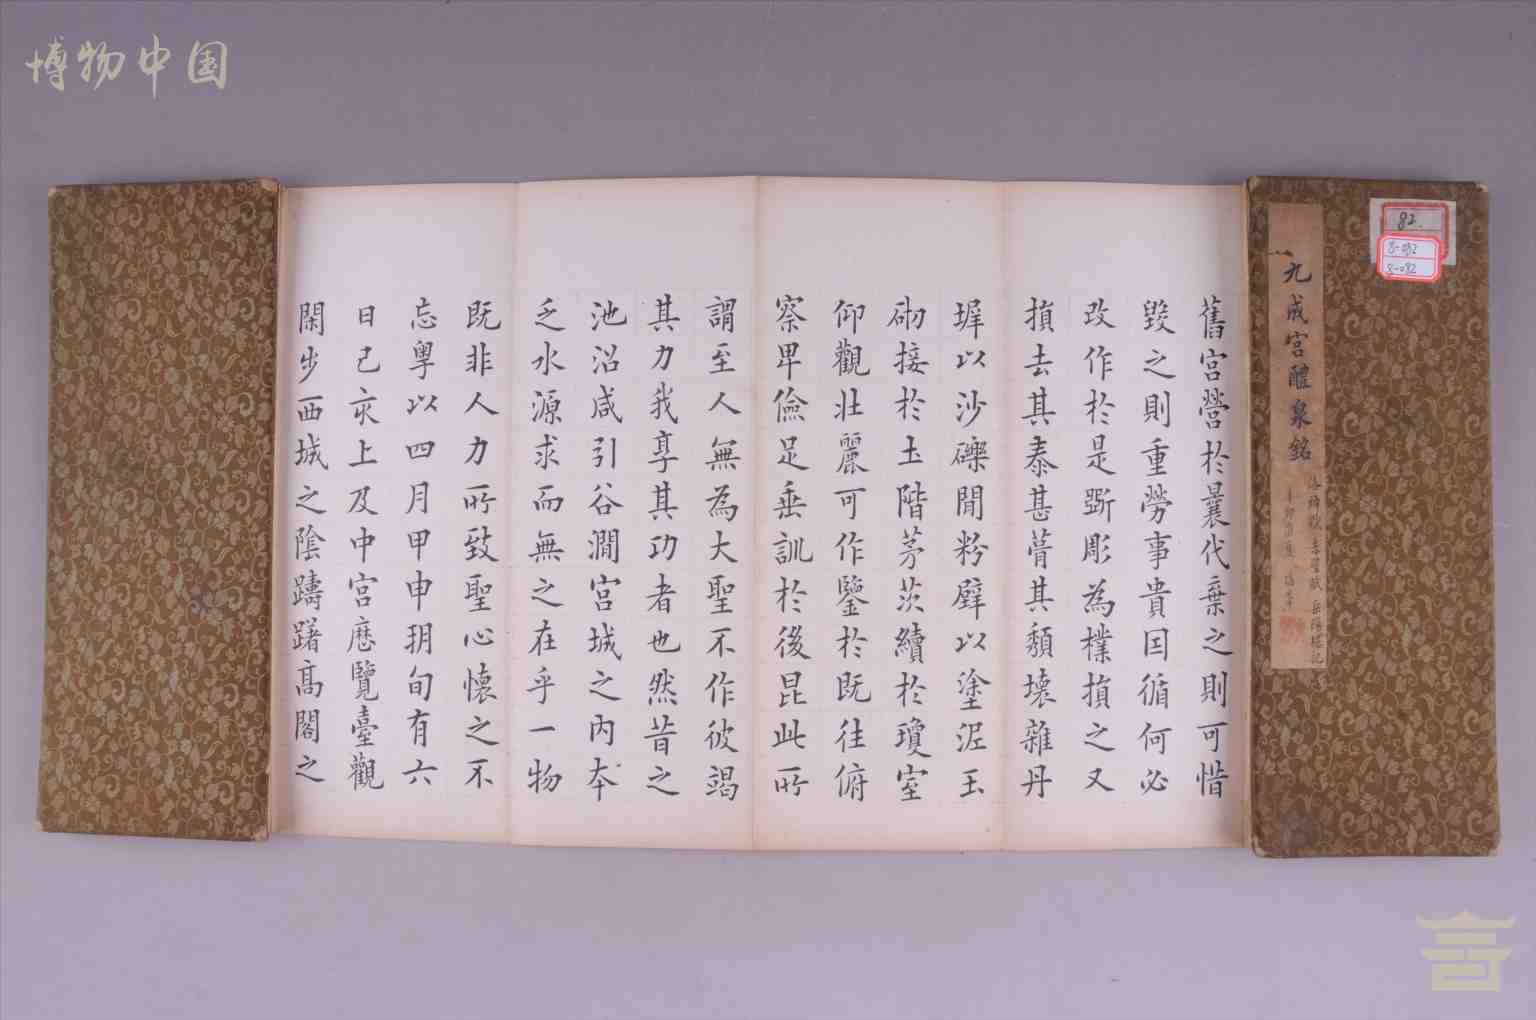 博物中国
82.
8-082
8-082
九成宮醴泉銘
舊宮營於曩代棄之則可惜
毀之則重勞事貴因循何必
改作於是斲彫為樸損之又
損去其泰甚葺其頹壞雜丹
墀以沙礫間粉壁以塗泥玉
砌接於土階茅茨續於瓊室
仰觀壯麗可作鑒於既往俯
察卑儉足垂訓於後昆此所
謂至人無為大聖不作彼竭
其力我享其功者也然昔之
池沼咸引谷澗宮城之內本
乏水源求而無之在乎一物
既非人力所致聖心懷之不
忘粵以四月甲申朔旬有六
日己亥上及中宮歷覽臺觀
閑步西城之陰躊躇高閣之